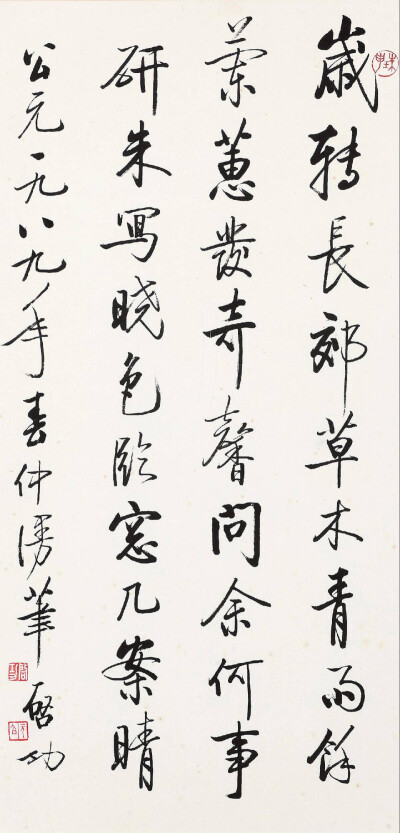 歲轉長郊草木青雨餘
蘭蕙發奇馨問余何事
研朱寫曉色臨窓几案晴
公元一九八九年春仲漫筆 啟功